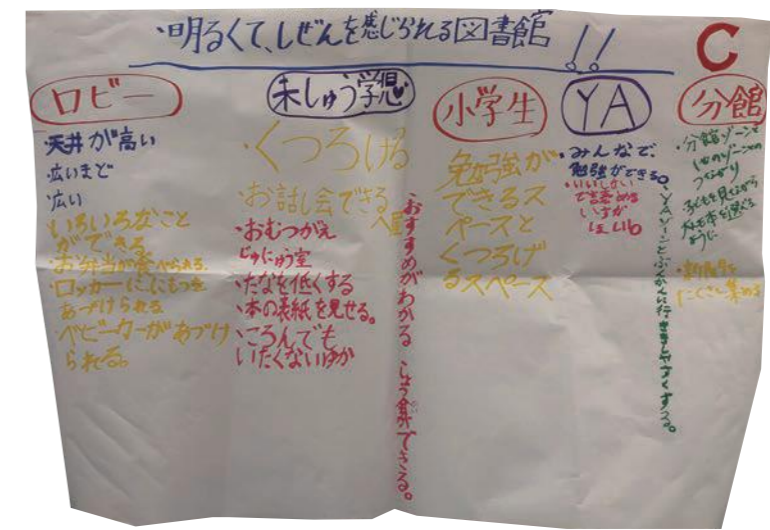 ・明るくて、しぜんを感じられる図書館!!
C
ロビー
・天井が高い
・広いまど
・広い
・いろいろなこと
ができる
・お弁当が食べられる。
・ロッカーににもつを
あづけられる
・ベビーカーがあづけ
られる。
未しゅう学児
・くつろげる
・お話し会できる
・おむつがえ
じゅにゅう室
・たなを低くする
・本の表紙を見せる。
・ころんでも
いたくないゆか
・おすすめがわかる しょう介できる。
小学生
勉強が
できるス
ペースと
くつろげ
るスペース
YA
・みんなで、
勉強ができる。
いすが
ほしい
・YAゾーンとぶんかんに行ききしやすくする。
分館
・分館ゾーンと
つながり
子どもを見ながら
大人も本を選べる
ように